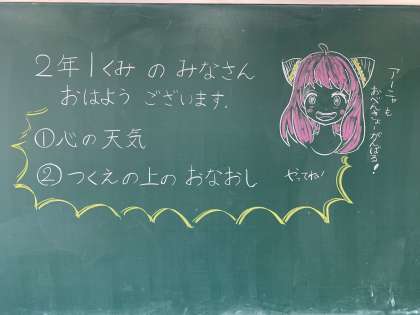 2年1くみ の みなさん
おはよう ございます.
①心の天気
②つくえの上の おなおし
やってね!
アーニャも
おべんきょーがんばる!